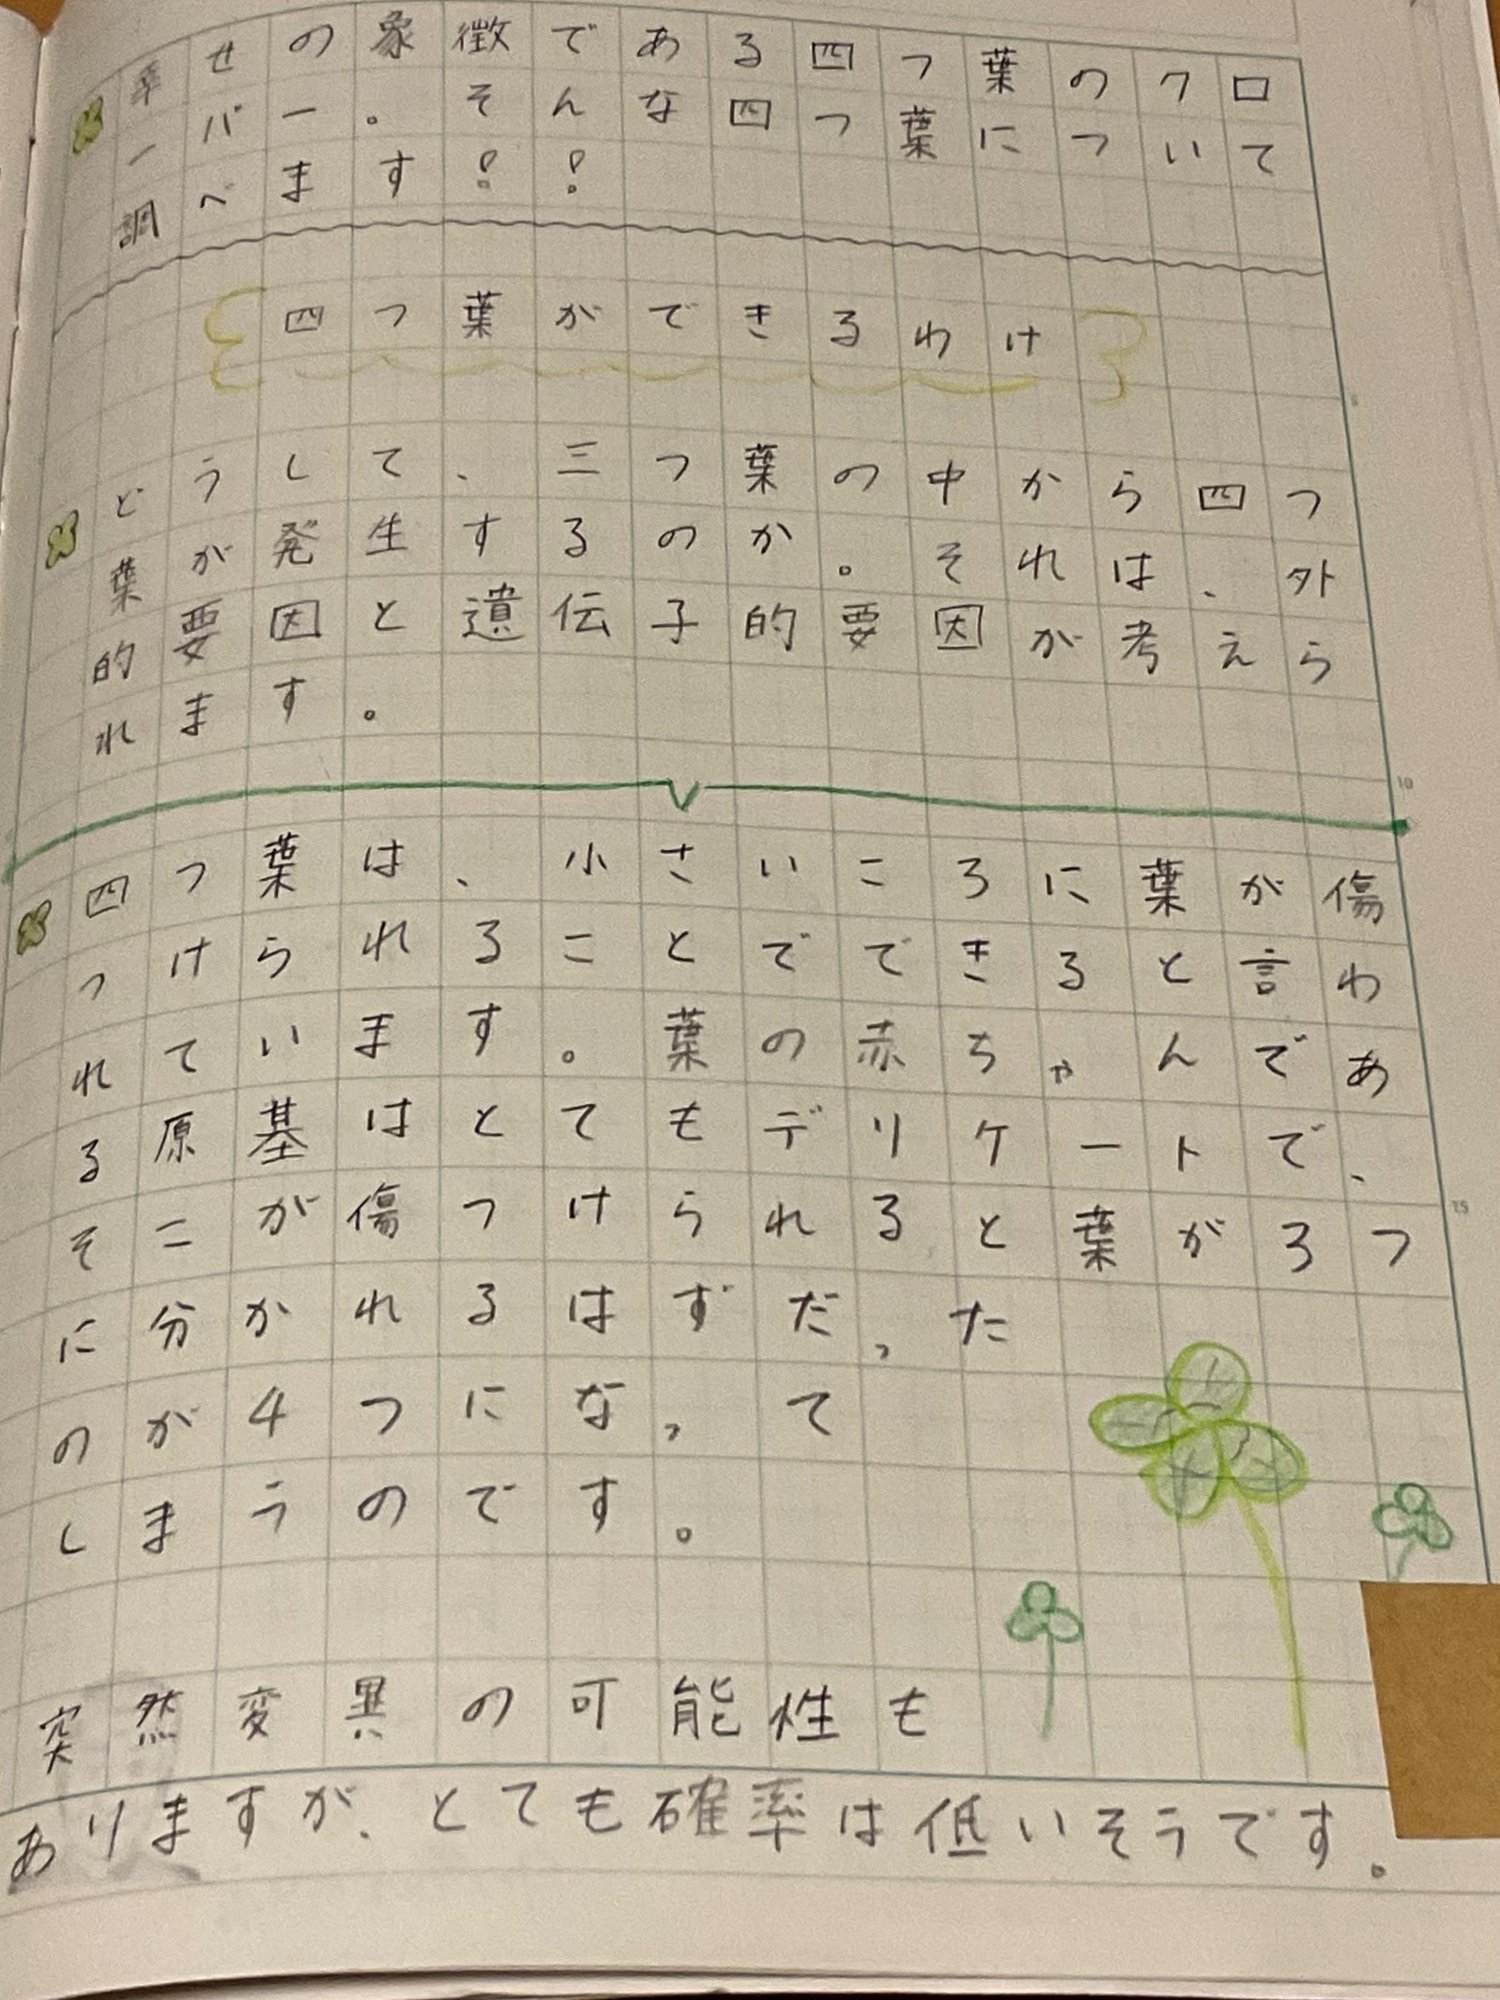 幸せの象徴である四つ葉のクロ
ーバー。そんな四つ葉について
調べます!!
四つ葉ができるわけ
どうして、三つ葉の中から四つ
葉が発生するのか。それは、外
的要因と遺伝子的要因が考えら
れます。
10
四つ葉は、小さいころに葉が傷
つけられることでできると言わ
れています。葉の赤ちゃんであ
る原基はとてもデリケートで、
そこが傷つけられると葉が3つ
15
に分かれるはずだった
のが4つになって
しまうのです。
突然変異の可能性も
ありますが、とても確率は低いそうです。